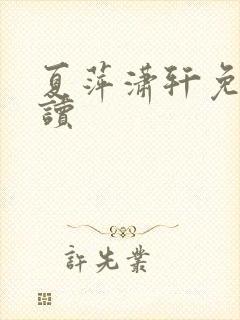 夏萍潇轩免
讀
許先業